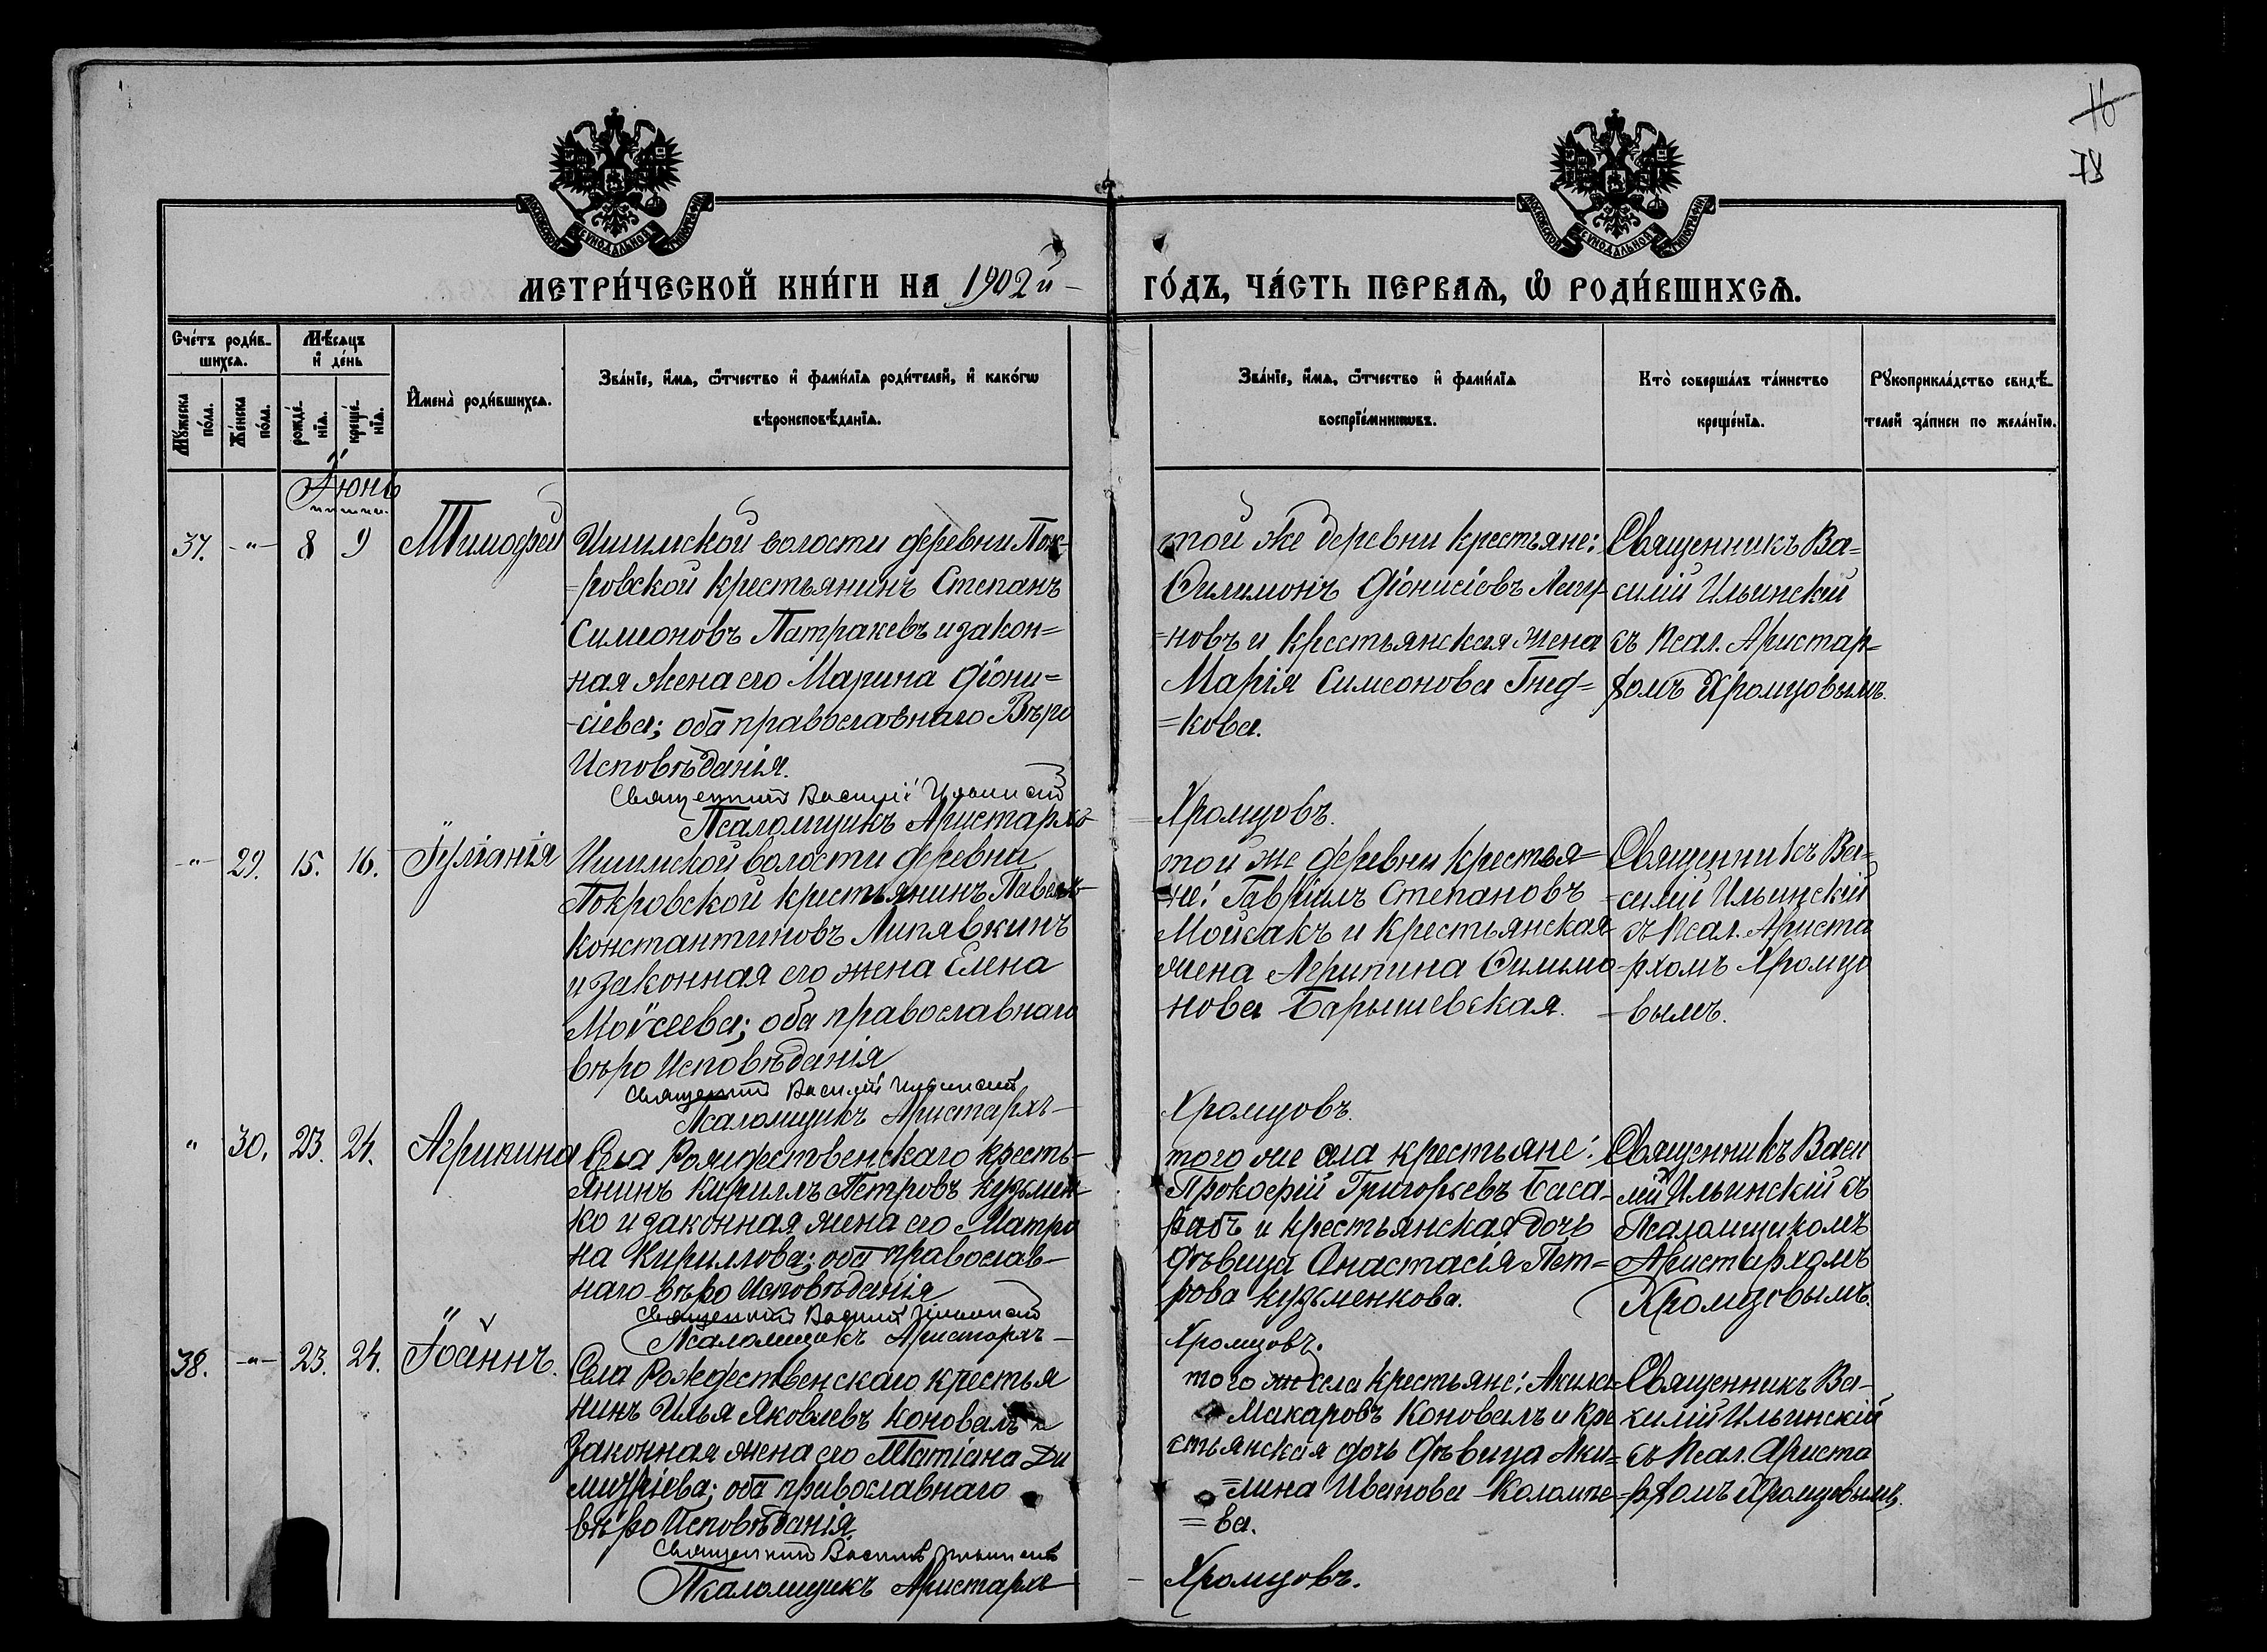 16
78
МОСКОВСКОЙ СѴНОДАЛЬНОЙ ТИПОГРАФІИ
МОСКОВСКОЙ СѴНОДАЛЬНОЙ ТИПОГРАФІИ
МЕТРИ́ЧЕСКОЙ КНИ́ГИ НА 1902й – ГО́ДЪ, ЧА́СТЬ ПЕРВАѦ, Ѡ РОДИ́ВШИХСѦ.
Счётъ роди́в-
шихсѧ.
Мꙋ́жеска по́ла.
Же́нска по́ла.
Мѣ́сѧцъ
и҆ де́нь
рожде́-
нїѧ.
креще́-
нїѧ.
И҆мена̀ роди́вшихсѧ.
Зва́нїе, и҆́мѧ, ѻ҆́тчество и҆ фами́лїѧ роди́телей, и҆ како́гѡ
вѣроисповѣ́данїѧ.
Зва́нїе, и҆́мѧ, ѻ҆́тчество и҆ фами́лїѧ
воспрїе́мникѡвъ.
Кто̀ соверша́лъ та́инство
креще́нїѧ.
Рꙋкоприкла́дство свидѣ́-
телей за́писи по жела́нїю.
Іюнь
37. -"- 8 9 Тимофей
Ишимской волости деревни Пок-
=ровской крестьянинъ Степанъ
Симеоновъ Патракевъ и закон=
ная жена его Марина Діони=
-сіева; оба православнаго Вѣро
Исповѣданія.
Священникъ Василій Ильинскій
Псаломщикъ Аристархъ
той же деревни крестьяне:
Филимонъ Діонисіовъ
=новъ и крестьянская жена
Марія Симеонова Гнед=
=кова.
Хромцовъ.
Священникъ Ва=
силій Ильинскій
съ Псал. Аристар=
хомъ Хромцовымъ.
-"- 29. 15. 16. Іуліанія
Ишимской волости деревни
Покровской крестьянинъ Павелъ
Константиновъ Липявкинъ
и законная его жена Елена
Моѵсеева; оба православнаго
вѣро Исповѣданія
Священникъ Василій Ильинскій
Псаломщикъ Аристархъ-
той же деревни крестья=
=не: Гавріилъ Степановъ
Мойсакъ и крестьянская
жена Агрипина Филимо
нова Барышевская.
Хромцовъ.
Священникъ Ва=
-силій Ильинскій
съ Псал. Ариста
-рхомъ Хромцо
-вымъ.
" 30. 23. 24. Агрипина
Села Рождественскаго кресть-
янинъ Кириллъ Петровъ Кузьмен-
ко и законная жена его Матро
на Кириллова; оба православ-
наго вѣро Исповѣданія
Священникъ Василій Ильинскій
Псаломщикъ Аристархъ-
того же села крестьяне:
Прокофій Григорьевъ Баса-
рабъ и крестьянская дочь
дѣвица Анастасія Пет=
рова Кузьменкова.
Хромцовъ.
Священникъ Васи
лій Ильинскій съ
Псаломщикомъ
Аристархомъ
Хромцовымъ.
38. -"- 23. 24. Іоаннъ.
Села Рождественскаго крестья
нинъ Илья Яковлевъ Коновалъ и
законная жена его Татіана Ди
митріева; оба православнаго
вѣро Исповѣданія.
Священникъ Василій Ильинскій
Псаломщикъ Аристархъ-
того же села крестьяне: Акила=
Макаровъ Коновалъ и кре
стьянская дочь дѣвица Аки=
=лина Иванова
=ва.
Хромцовъ.
Священникъ Ва-
силій Ильинскій
съ Псал. Ариста
=рхомъ Хромцовымъ.